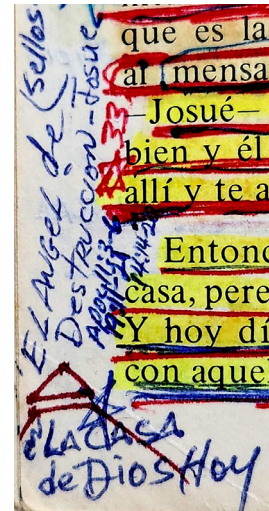 que es la
al mensa
–Josué–
bien y él
allí y te a
Entonc
casa, pere
Y hoy dí
con aque
EL ANGEL de (sellos
Destrucción-Josue
33
en LA CASA
de Dios Hoy